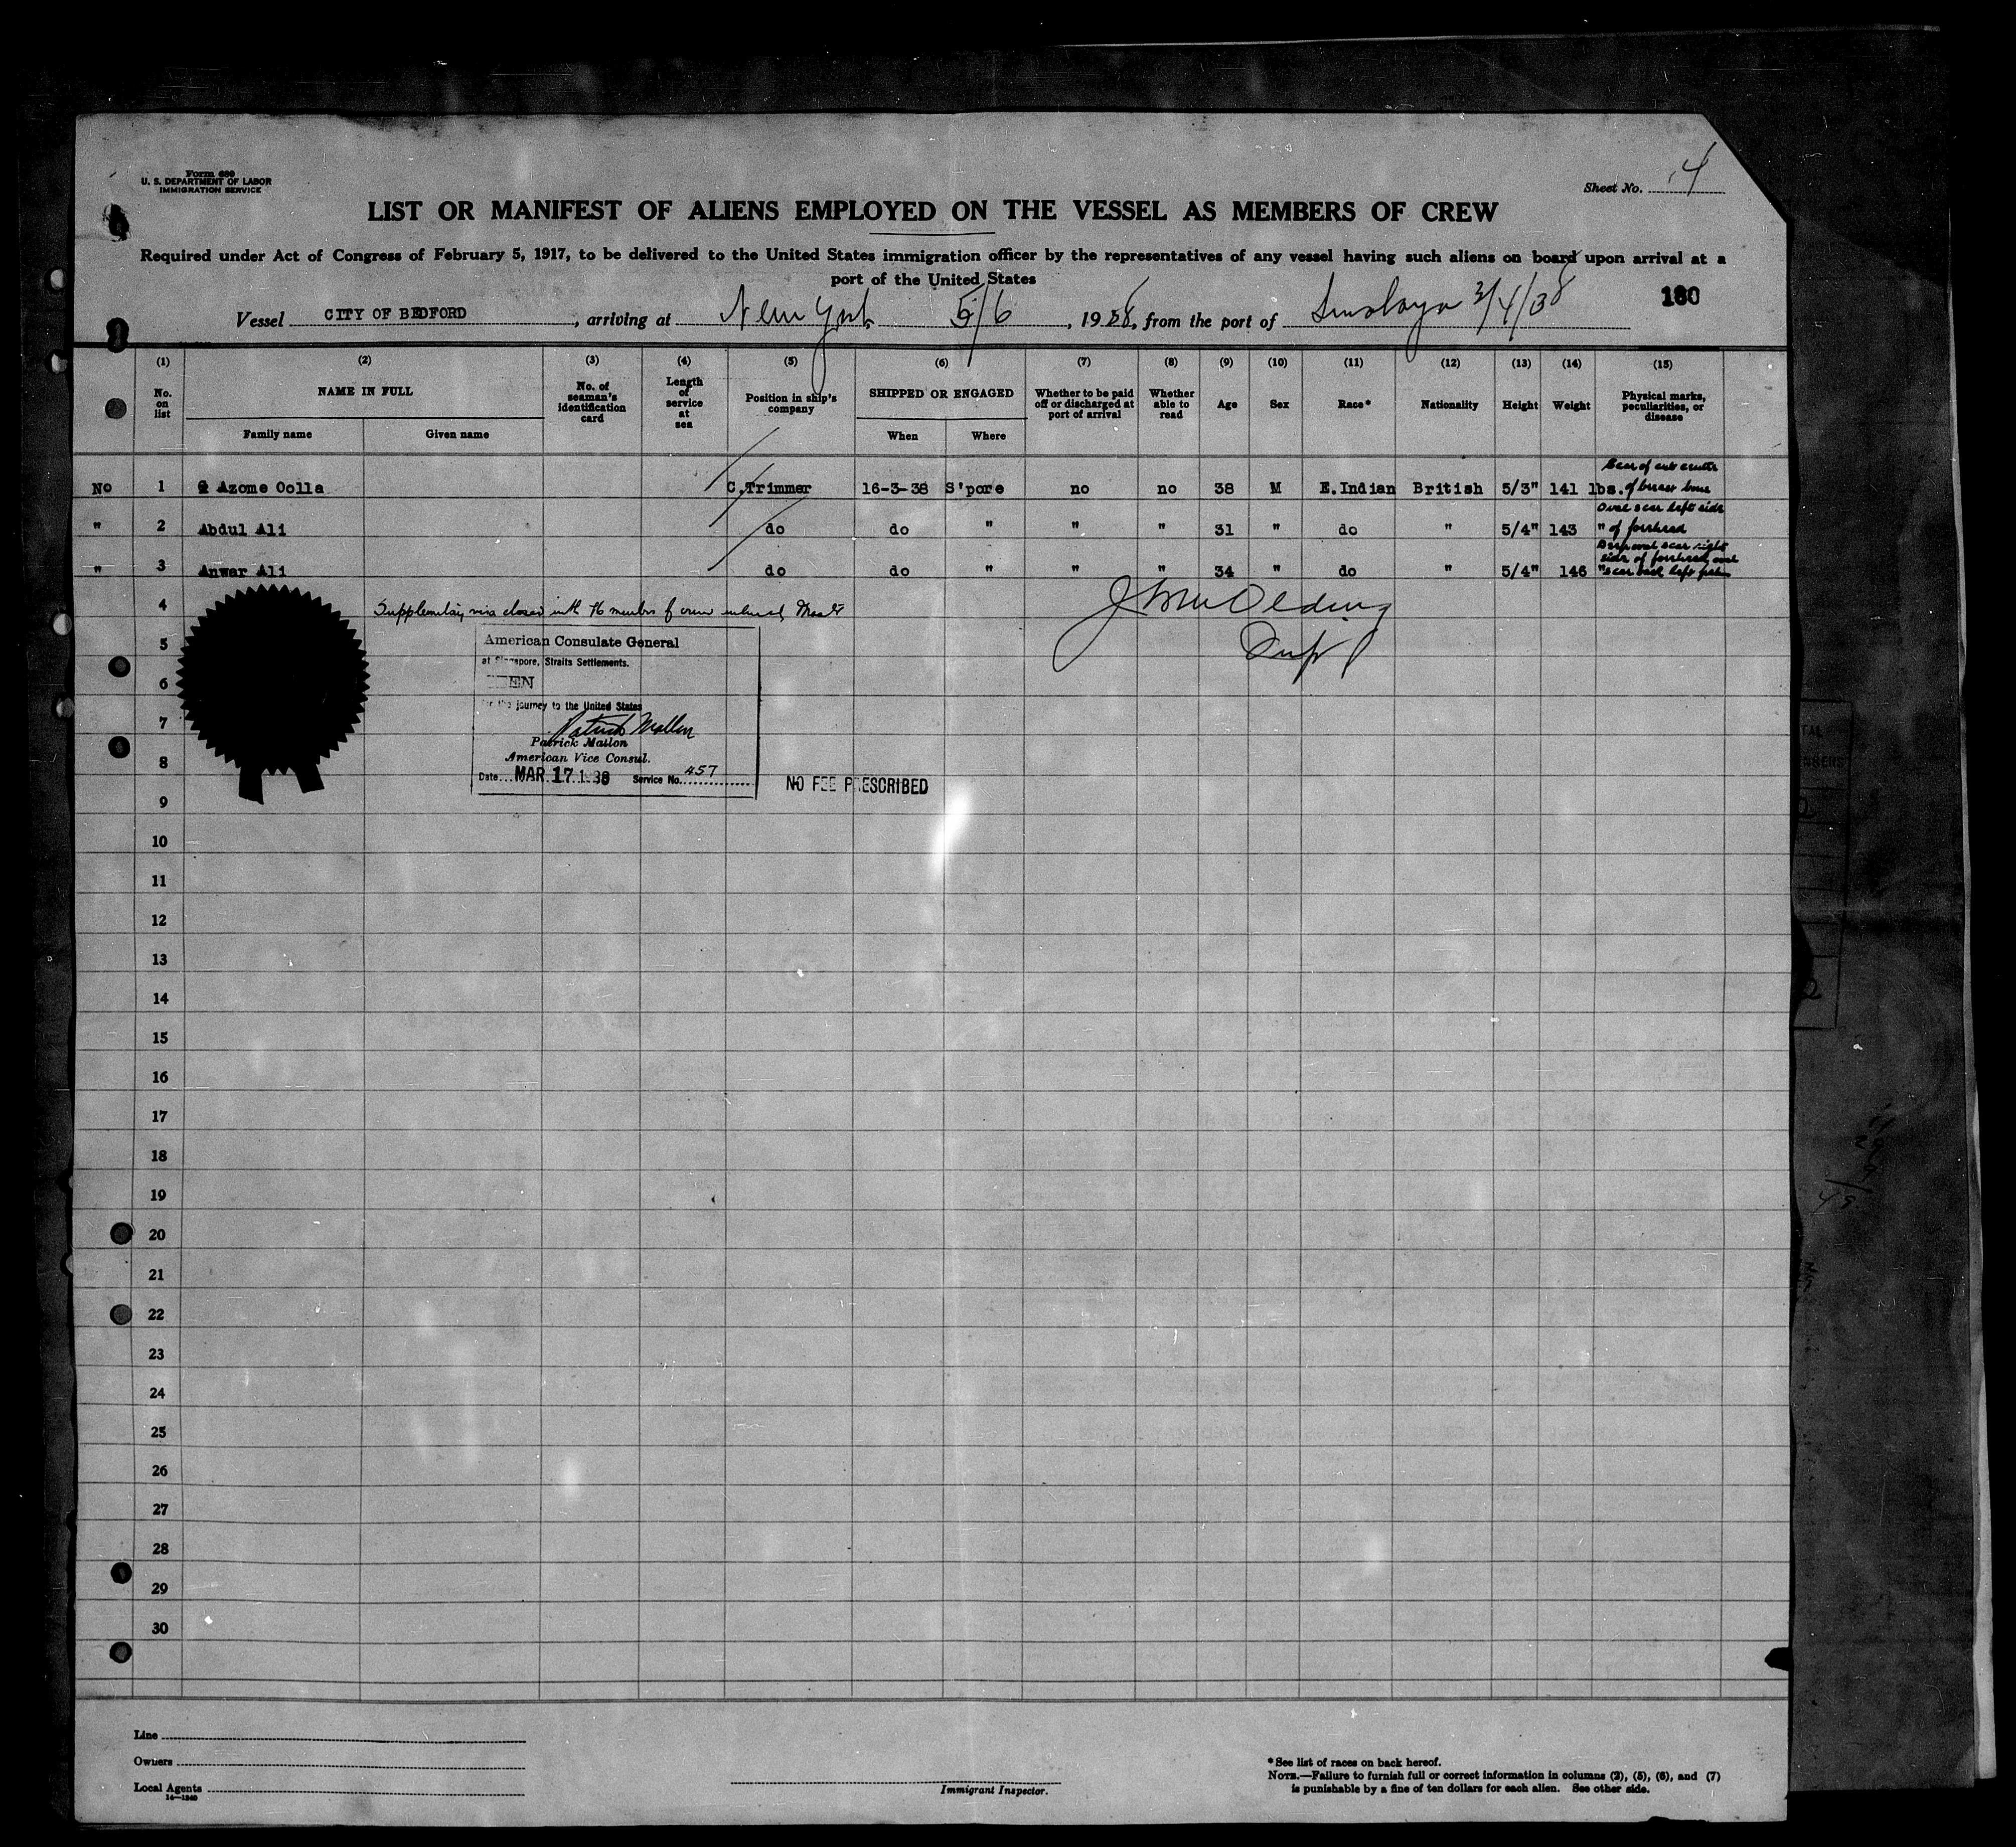 Form 680
U. S. DEPARTMENT OF LABOR
IMMIGRATION SERVICE
Sheet No. 4
LIST OR MANIFEST OF ALIENS EMPLOYED ON THE VESSEL AS MEMBERS OF CREW
Required under Act of Congress of February 5, 1917, to be delivered to the United States immigration officer by the representatives of any vessel having such aliens on board upon arrival at a
port of the United States
180
Vessel CITY OF BEDFORD, arriving at New York 5/6, 1938, from the port of 3/4/38
(1) (2) (3) (4) (5) (6) (7) (8) (9) (10) (11) (12) (13) (14) (15)
No. on list NAME IN FULL No. of seaman's identification card Length of service at sea Position in ship's company SHIPPED OR ENGAGED Whether to be paid off or discharged at port of arrival Whether able to read Age Sex Race* Nationality Height Weight Physical marks, peculiarities, or disease
Family name Given name When Where
No 1 Azome Oolla C.Trimmer 16-3-38 S'pore no no 38 M E.Indian British 5/3" 141 lbs. Scar of of breast bone
" 2 Abdul Ali do do " " " 31 " do " 5/4" 143 " Oval scar left side of forehead
" 3 Anwar Ali do do " " " 34 " do " 5/4" 146 " Deep oval scar right side of forehead and scar back left
4 Supplementary visa closed with 76 members of crew Master
5
6
7
8
9
American Consulate General
at Singapore, Straits Settlements.
EN
for the journey to the United States
Patrick Mallon
Patrick Mallon
American Vice Consul.
Date MAR 17 1938 Service No. 457
NO FEE PRESCRIBED
10
11
12
13
14
15
16
17
18
19
20
21
22
23
24
25
26
27
28
29
30
Line
Owners
Local Agents
16—1240
Immigrant Inspector.
*See list of races on back hereof.
NOTE.—Failure to furnish full or correct information in columns (2), (5), (6), and (7)
is punishable by a fine of ten dollars for each alien. See other side.